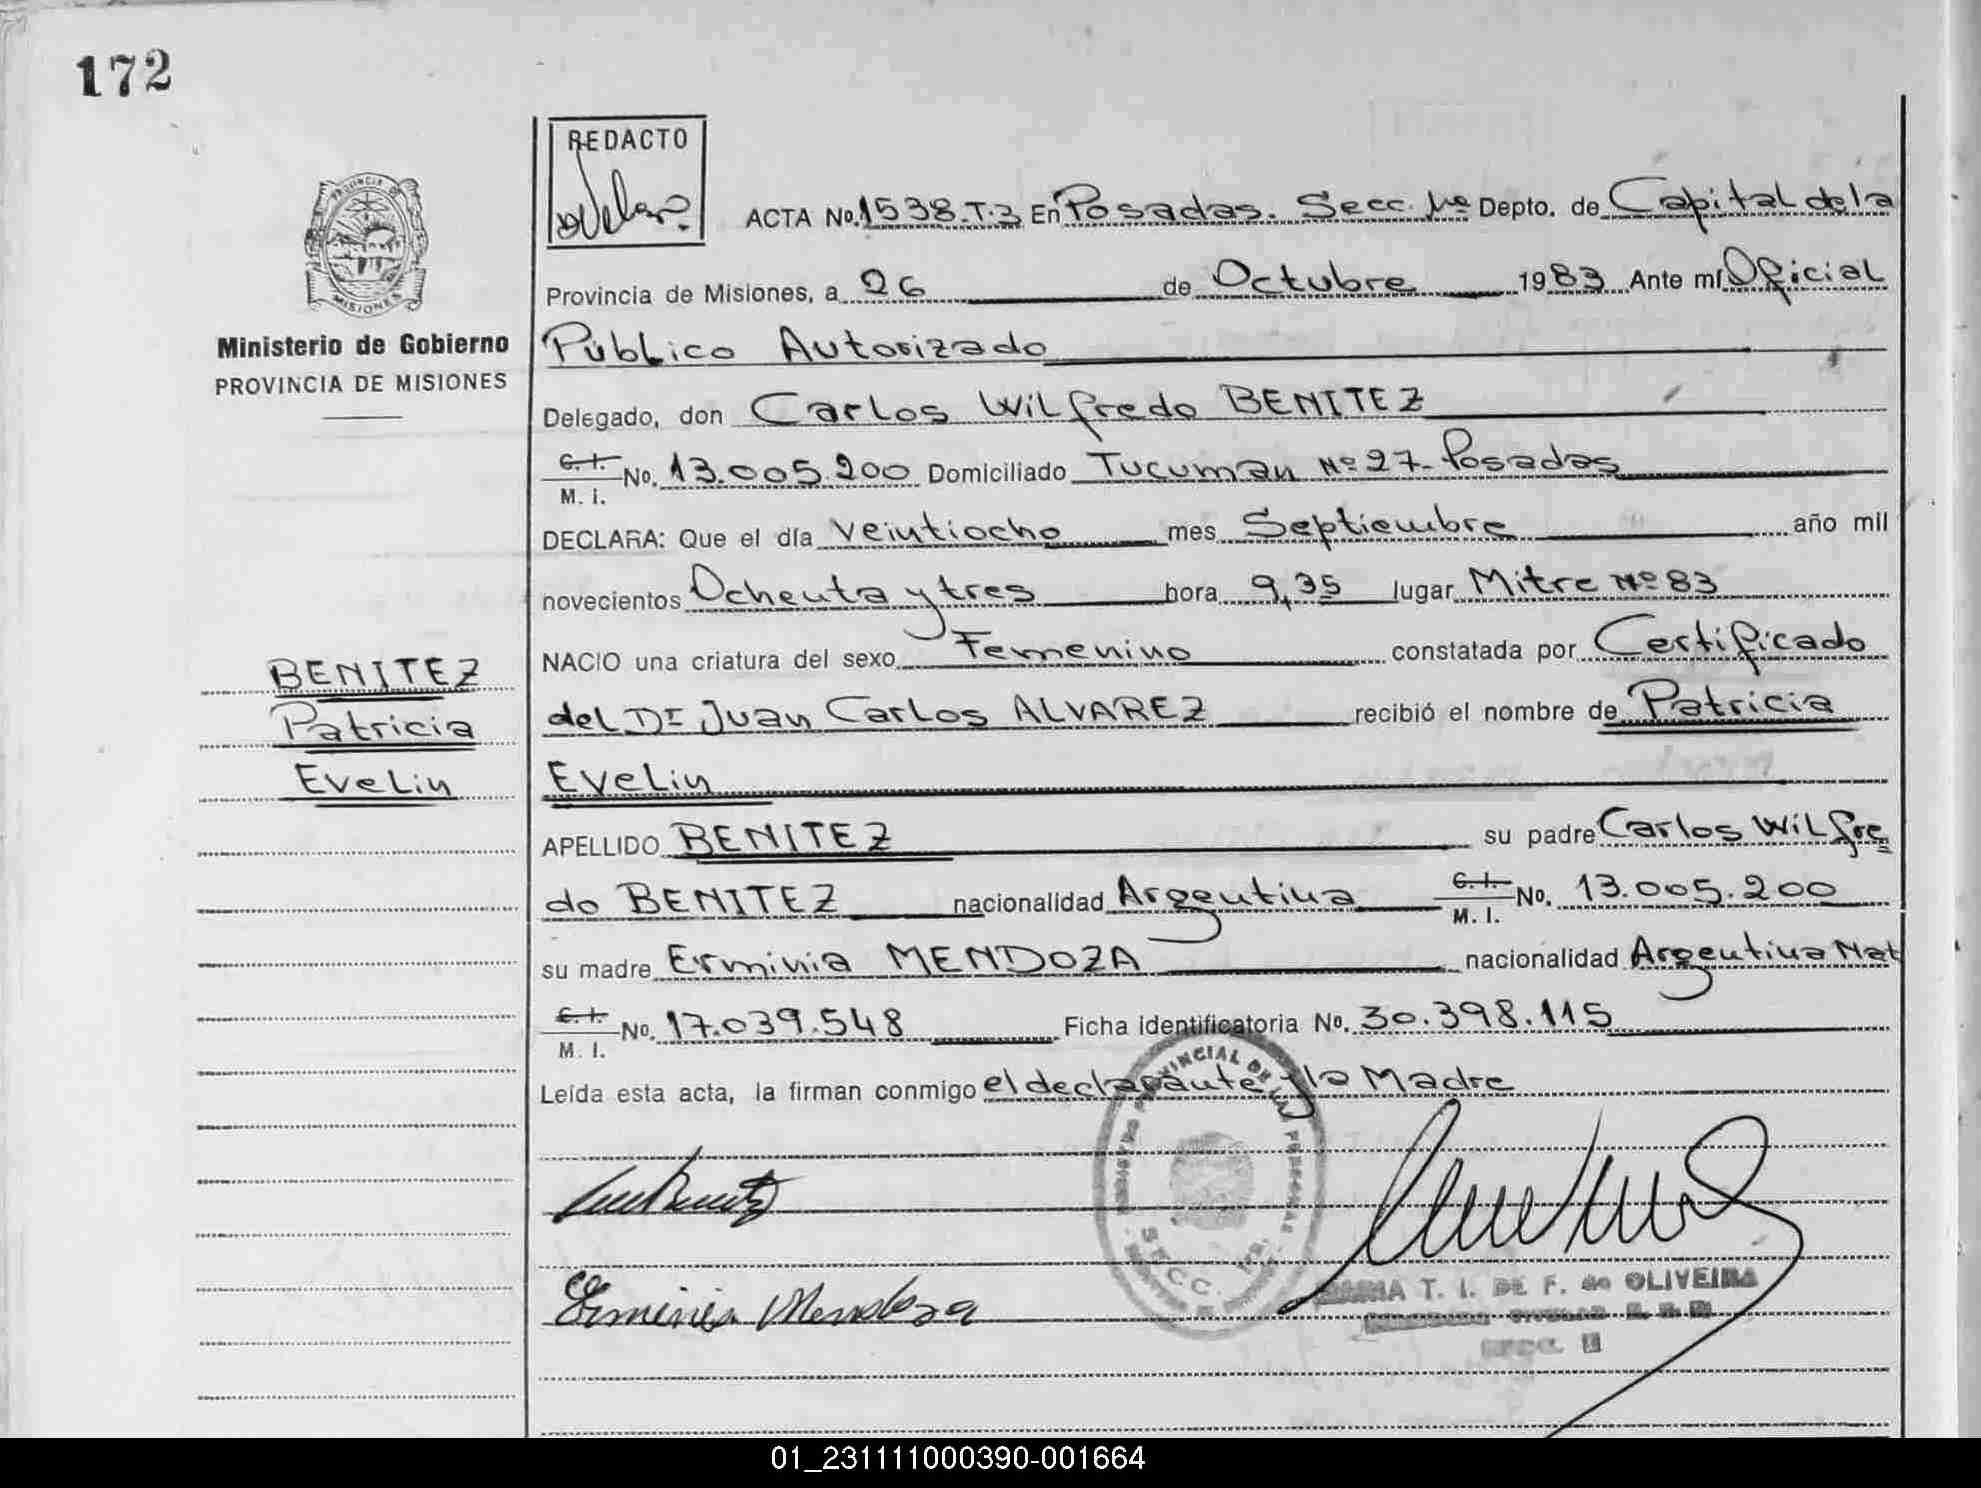 172
REDACTO
ACTA No. 1538.T.3 En Posadas. Secc. 1ra Depto. de Capital de la
PROVINCIA DE
MISIONES
Provincia de Misiones, a 26 de Octubre 1983 Ante mí Oficial
Ministerio de Gobierno
PROVINCIA DE MISIONES
Público Autorizado
Delegado, don Carlos Wilfredo BENITEZ
C.I. M. I. No. 13.005.200 Domiciliado Tucuman Nº 27- Posadas
DECLARA: Que el día veintiocho mes Septiembre año mil
novecientos Ochenta y tres hora 9,35 lugar Mitre Nº 83
NACIO una criatura del sexo Femenino constatada por Certificado
BENITEZ
Patricia
Evelin
del Dr Juan Carlos ALVAREZ recibió el nombre de Patricia
Evelin
APELLIDO BENITEZ su padre Carlos Wilfre
do BENITEZ nacionalidad Argentina C.I. M. I. No. 13.005.200
su madre Erminia MENDOZA nacionalidad Argentina Nat
C.I. M. I. No. 17.039.548 Ficha identificatoria No. 30.398.115
Leída esta acta, la firman conmigo el declarante y la Madre
PROVINCIAL DE LAS PERSONAS
SECC.
Erminia Mendoza
MARIA T. I. DE F. de OLIVEIRA
01_231111000390-001664